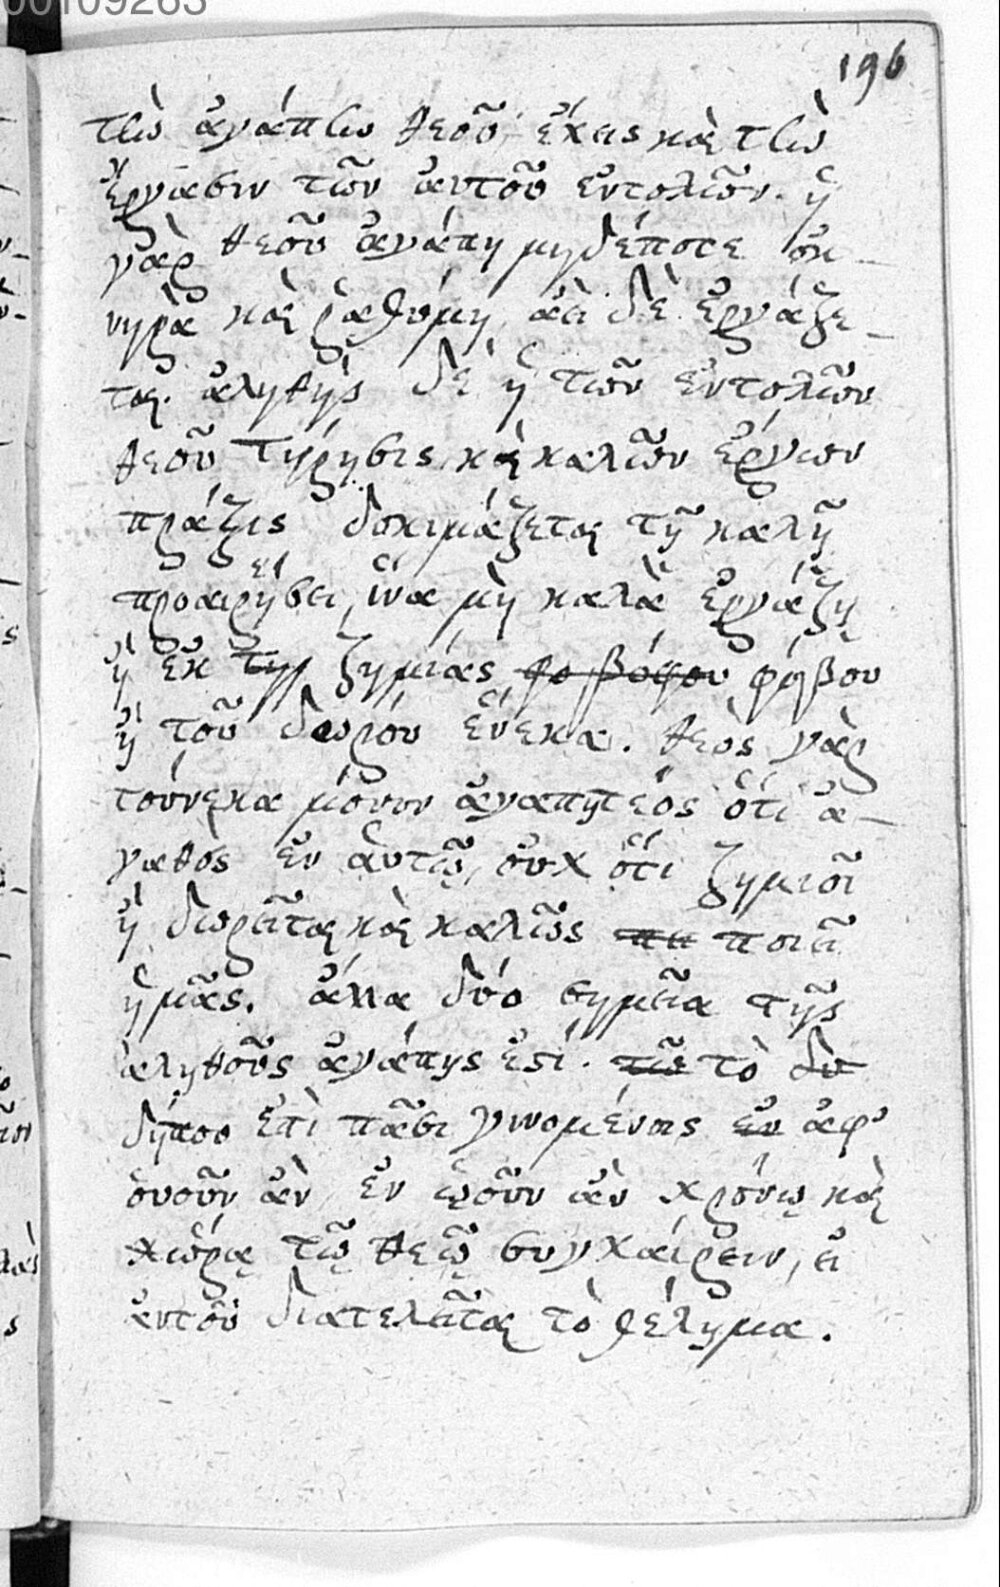 00109263
196
τὴν ἀγάπην θεοῦ, ἔχεις καὶ τὴν
ἔργασιν τῶν ἀυτοῦ ἐντολῶν. ἡ
γὰρ θεοῦ ἀγάπη μηδέποτε ὀκ-
νηρὰ καὶ ῥαθύμη, ἀεὶ δὲ ἐργάζε-
ται. ἀληθὴς δὲ ἡ τῶν ἐντολῶν
θεοῦ τήρησις, καὶ καλῶν ἔργων
πράξις δοκιμάζεται τῇ καλῇ
προαιρήσει, ἵνα μὴ καλὰ ἐργάζῃ
ἢ ἐκ τῆς ζημίας φόβου
ἢ τοῦ δωρόυ ἕνεκα. θεὸς γὰρ
τούνεκα μόνον ἀγαπητέος ὅτι ἀ-
γαθὸς ἐν ἀυτῷ, οὐχ ὅτι ζημιοῖ
ἢ δωρεῖται καὶ καλῶς ποιεῖ
ἡμᾶς. ἄλλα δύο σημεῖα τῆς
ἀληθοῦς ἀγάπης ἐστί. τὸ
δήποο ἐπὶ πᾶσι γινομένοις ἀφ'
ὁυοῦν ἂν, ἐν ᾡοῦν ἂν χρόνῳ καὶ
χώρᾳ τῷ θεῷ συγχαίρειν, εἰ
ἀυτοῦ διατελεῖται τὸ θέλημα.